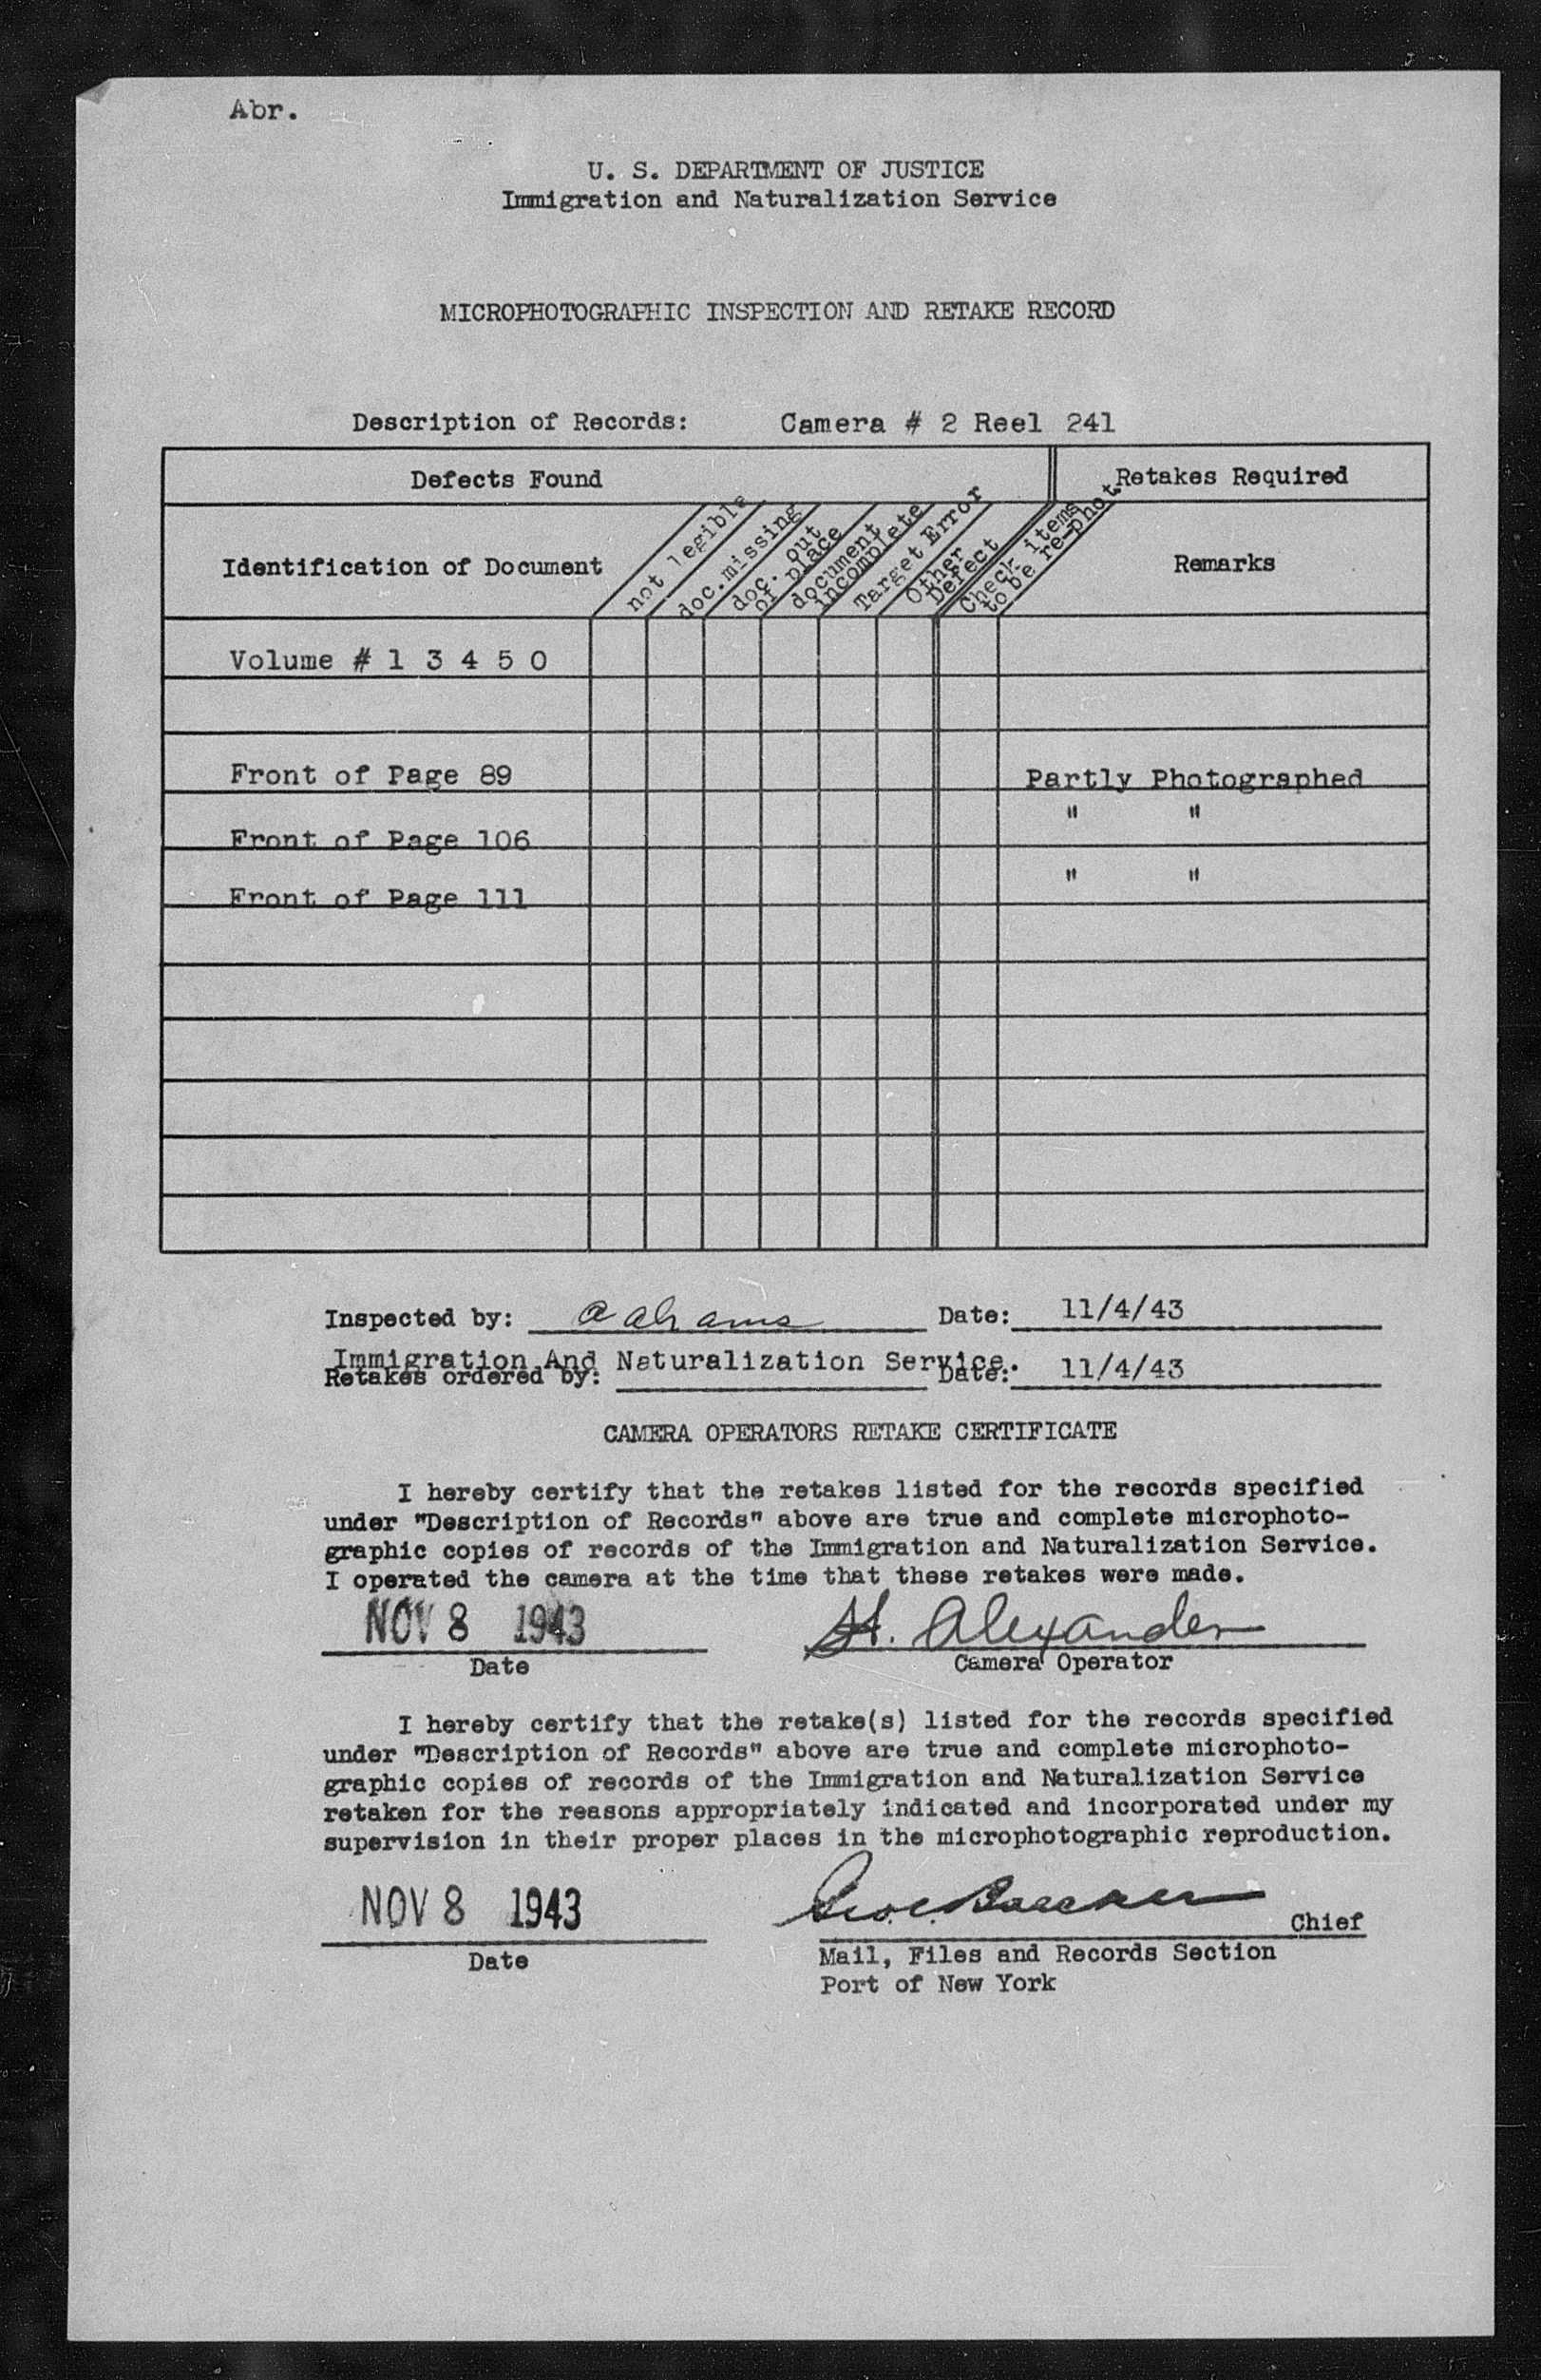 Abr.
U. S. DEPARTMENT OF JUSTICE
Immigration and Naturalization Service
MICROPHOTOGRAPHIC INSPECTION AND RETAKE RECORD
Description of Records: Camera # 2 Reel 241
Defects Found
Retakes Required
Identification of Document
not legible
doc. missing
doc. out
of place
document
incomplete
Target Error
Other
Defect
Check items
to be re-phot.
Remarks
Volume # 1 3 4 5 0
Front of Page 89 Partly Photographed
" "
Front of Page 106
" "
Front of Page 111
Inspected by: Date: 11/4/43
Immigration And Naturalization Service.
Retakes ordered by: Date: 11/4/43
CAMERA OPERATORS RETAKE CERTIFICATE
I hereby certify that the retakes listed for the records specified
under "Description of Records" above are true and complete microphoto-
graphic copies of records of the Immigration and Naturalization Service.
I operated the camera at the time that these retakes were made.
NOV 8 1943 H. Alexander
Date Camera Operator
I hereby certify that the retake(s) listed for the records specified
under "Description of Records" above are true and complete microphoto-
graphic copies of records of the Immigration and Naturalization Service
retaken for the reasons appropriately indicated and incorporated under my
supervision in their proper places in the microphotographic reproduction.
NOV 8 1943 Chief
Date Mail, Files and Records Section
Port of New York